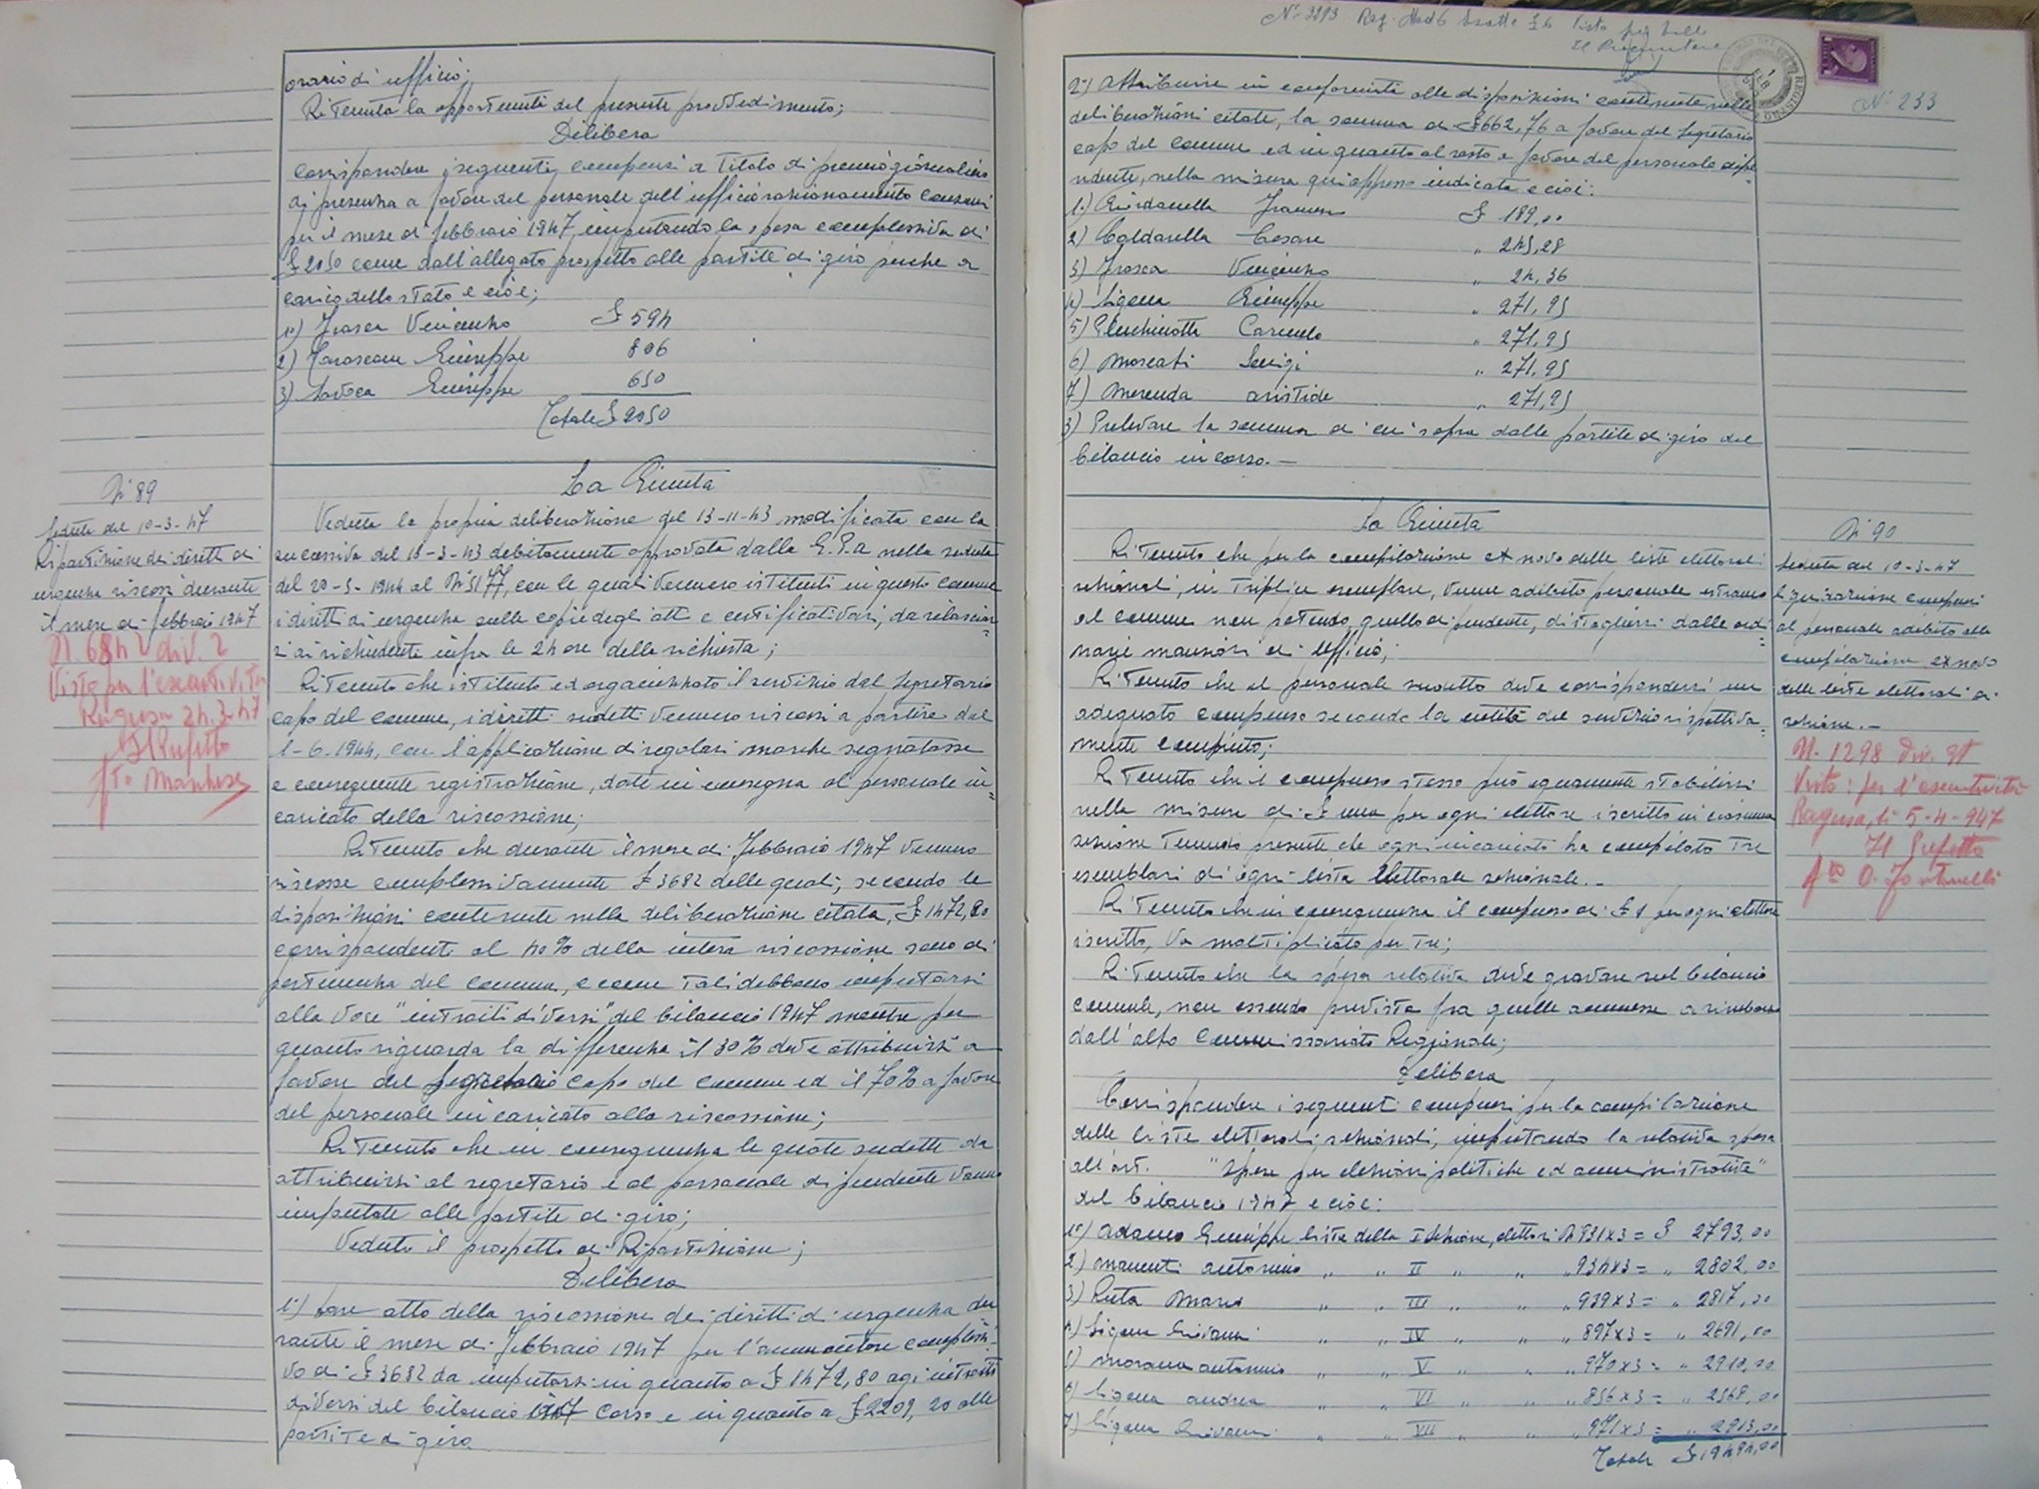 orario di ufficio;
Ritenuta la opportunità del presente provvedimento;
Delibera
corrispondere i seguenti compensi a titolo di premio giornaliero
di presenza a favore del personale dell'ufficio razionamento consumi
per il mese di febbraio 1947, imputando la spesa complessiva di
£ 2050 come dall'allegato prospetto alle partite di giro perché a
carico dello stato e cioè;
1°) Frasca Vincenzo £ 594
2) Giuseppe 806
3) Savoca Giuseppe 650
Totale £ 2050
N° 89
Seduta del 10-3-47
Ripartizione dei diritti di
urgenza riscossi durante
il mese di febbraio 1947
N. 6842 div. 2
Visto per l'esecutività
Ragusa 24.3.47
Il Prefetto
fto Marchese
La Giunta
Veduta la propria deliberazione del 13-11-43 modificata con la
successiva del 10-3-43 debitamente approvata dalla G.P.A nella seduta
del 20-5-1944 al N° 5177, con le quali vennero istituiti in questo comune
i diritti di urgenza sulle copie degli atti e certificati vari, da rilasciar=
si ai richiedente infra le 24 ore della richiesta;
Ritenuto che istituito ed organizzato il servizio dal Segretario
capo del comune, i diritti sudetti vennero riscossi a partire dal
1-6-1944, con l'applicazione di regolari marche segnatasse
e conseguente registrazione, date in consegna al personale in=
caricato della riscossione;
Ritenuto che durante il mese di febbraio 1947 vennero
riscosse complessivamente £ 3682 delle quali, secondo le
disposizioni contenute nella deliberazione citata, £ 1472,80
corrispondenti al 40% della intera riscossione sono di
pertinenza del comune, e come tali debbono imputarsi
alla voce "introiti diversi" del bilancio 1947 mentre per
quanto riguarda la differenza il 30% deve attribuirsi a
favore del Segretario capo del comune ed il 70% a favore
del personale incaricato alla riscossione;
Ritenuto che in conseguenza le quote sudette da
attribuirsi al segretario e al personale dipendente vanno
imputate alle partite di giro;
Veduto il prospetto di Ripartizione;
Delibera
1°) dare atto della riscossione dei diritti di urgenza du
rante il mese di febbraio 1947 per l'ammontare complessi=
vo di £ 3682 da imputarsi in quanto a £ 1472,80 agi introiti
diversi del bilancio 1947 corso e in quanto a £ 2209,20 alle
partite di giro
N° 3293
N° 233
2°) Attribuire in conformità alle disposizioni contenute nelle
deliberazioni citate, la somma di £ 662,76 a favore del Segretario
capo del comune ed in quanto al resto a favore del personale dipe
ndente, nella misura qui appresso indicata e cioè:
1°) £ 189,00
2) Caldarella Cesare " 245,28
3) Frasca Vincenzo " 24,36
4) Ligama Giuseppe " 271,95
5) Carmelo " 271,95
6) Moscati Luigi " 271,95
7) Merenda aristide " 271,95
3) Prelevare la somma di cui sopra dalle partite di giro del
bilancio in corso.—
La Giunta
Ritenuto che per la compilazione ex novo delle liste elettorali
sezionali, in triplice esemplare, venne adibito personale estraneo
al comune non potendo, quello dipendente, distogliersi dalle ordi
narie mansioni di Ufficio;
Ritenuto che al personale sudetto deve corrispondersi un
adeguato compenso secondo la entità del servizio rispettiva
mente compiuto;
Ritenuto che il compenso stesso può equamente stabilirsi
nella misura di £ una per ogni elettore iscritto in ciascuna
sezione tenendo presente che ogni incaricato ha compilato tre
esemblari di ogni lista Elettorale sezionale.—
Ritenuto che in conseguenza il compenso di £ 1 per ogni elettore
iscritto, va moltiplicato per tre;
Ritenuto che la spesa relativa deve gravare sul bilancio
comunale, non essendo prevista fra quelle ammesse a rimborso
dall'alto Commissariato Regionale;
Delibera
Corrispondere i seguenti compensi per la compilazione
delle liste elettorali sezionali, imputando la relativa spesa
all'art. "Spese per elezioni politiche ed amministrative"
del bilancio 1947 e cioè:
1°) Adamo Giuseppe lista della I Sezione, elettori N° 931x3 = £ 2793,00
2) Manenti antonino " " II " " " 934x3 = " 2802,00
3) Ruta Mario " " III " " " 939x3 = " 2817,00
4) Ligama Giovanni " " IV " " " 897x3 = " 2691,00
5) Morana antonino " " V " " " 970x3 = " 2910,00
6) Ligama andrea " " VI " " " 856x3 = " 2568,00
7) Ligama Giovanni " " VII " " " 971x3 = " 2913,00
Totale £ 19494,00
N° 90
Seduta del 10-3-47
Liquidazione compensi
al personale adibito alla
compilazione ex novo
delle liste elettorali di
sezione.—
N. 1298 Div. 2ª
Visto: per l'esecutività
Ragusa, li 5-4-947
Il Prefetto